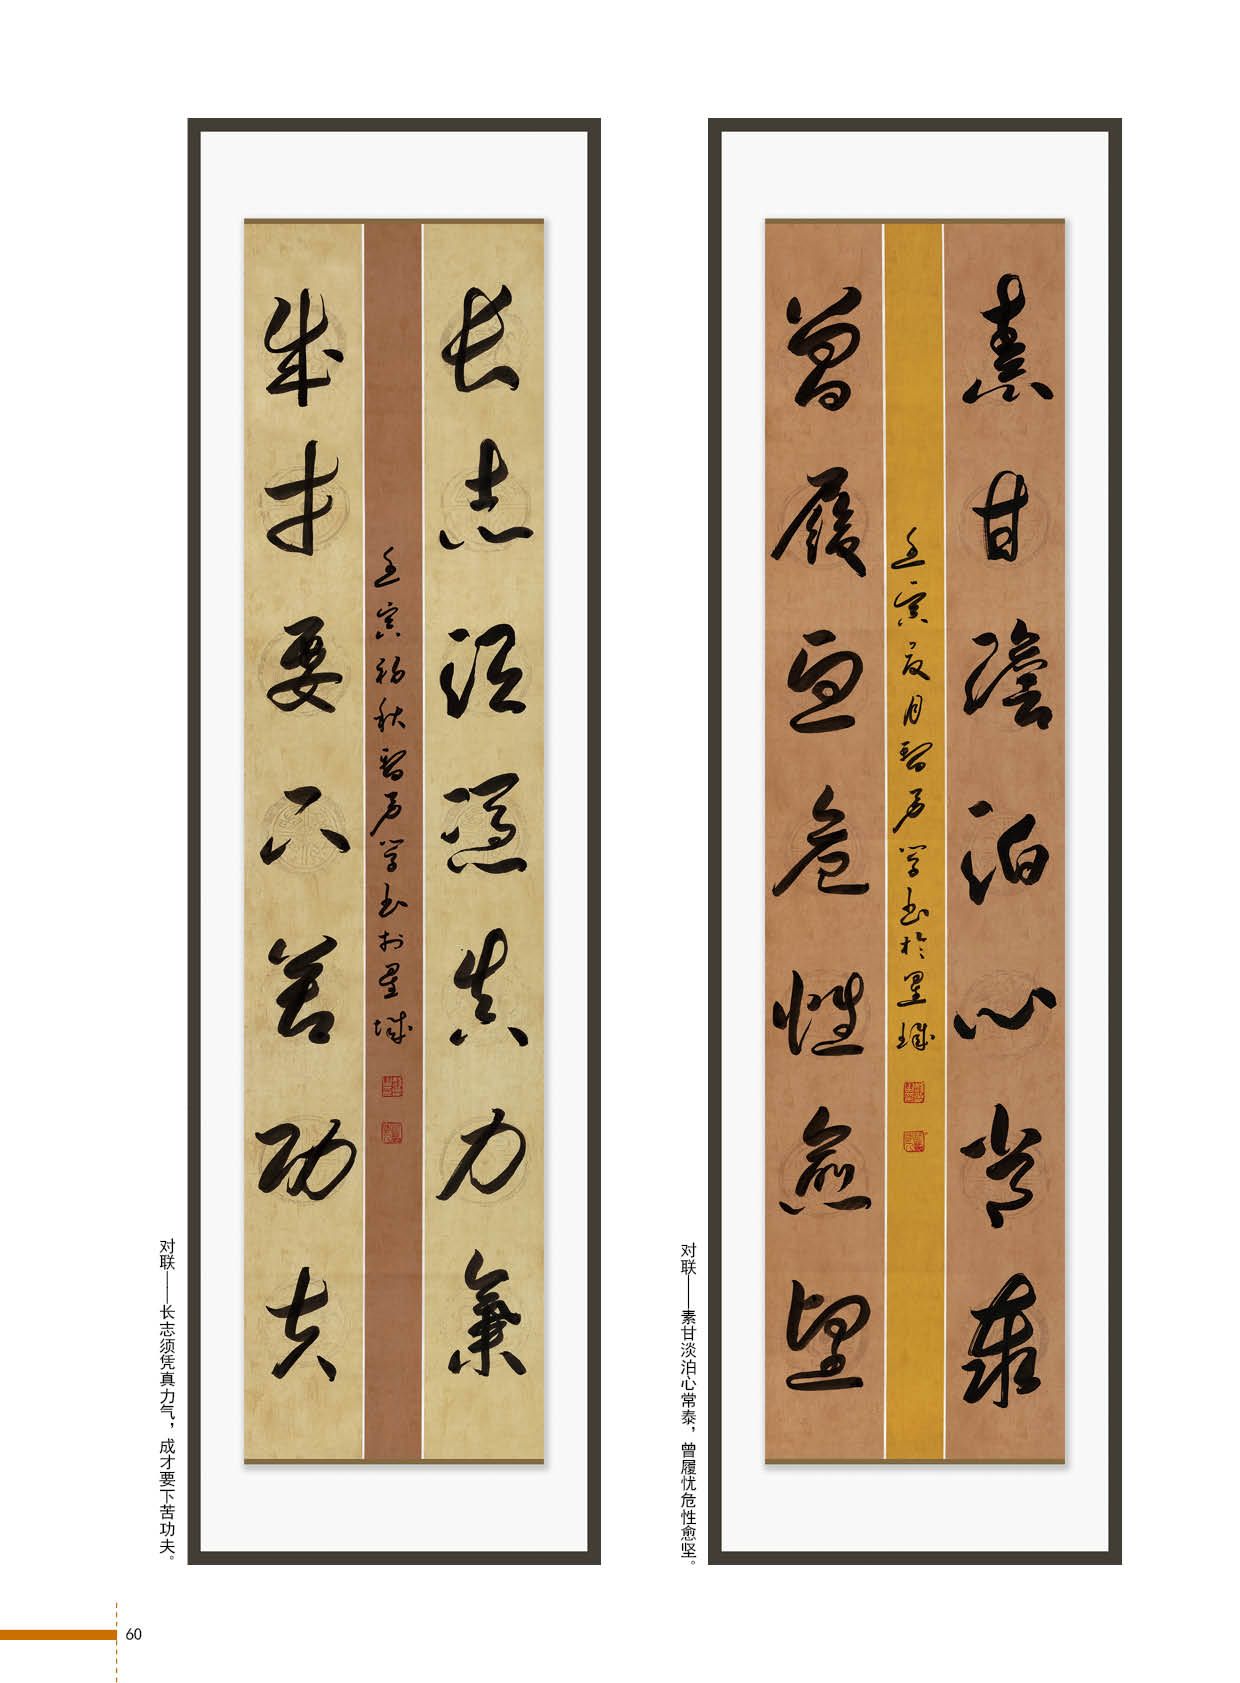 素甘澹泊心常泰
曾履㥑危性愈坚
壬寅夏月智勇学书於星城
对联——素甘淡泊心常泰，曾履忧危性愈坚。
长志须凭真力气
成才要下苦功夫
壬寅初秋智勇学书於星城
对联——长志须凭真力气，成才要下苦功夫。
60